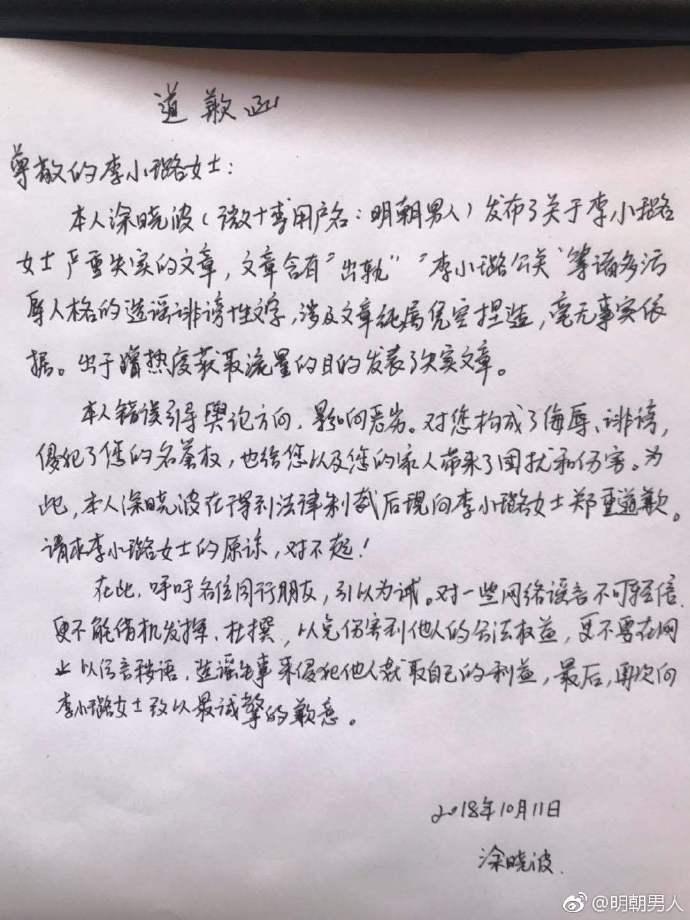 道歉函
尊敬的李小璐女士：
本人涂晓波（微博用户名：明朝男人）发布了关于李小璐
女士严重失实的文章，文章含有“出轨”“李小璐公关”等诸多污
辱人格的造谣诽谤性文字，涉及文章纯属凭空捏造，毫无事实依
据。出于蹭热度获取流量的目的发表了失实文章。
本人错误引导舆论方向，影响恶劣。对您构成了侮辱、诽谤，
侵犯了您的名誉权，也给您以及您的家人带来了困扰和伤害。为
此，本人涂晓波在得到法律制裁后现向李小璐女士郑重道歉。
请求李小璐女士的原谅，对不起！
在此，呼吁各位同行朋友，引以为诫。对一些网络谣言不可轻信，
更不能借机发挥、杜撰，以免伤害到他人的合法权益，更不要在网
上以污言秽语，造谣生事来侵犯他人获取自己的利益，最后，再次向
李小璐女士致以最诚挚的歉意。
2018年10月11日
涂晓波
@明朝男人